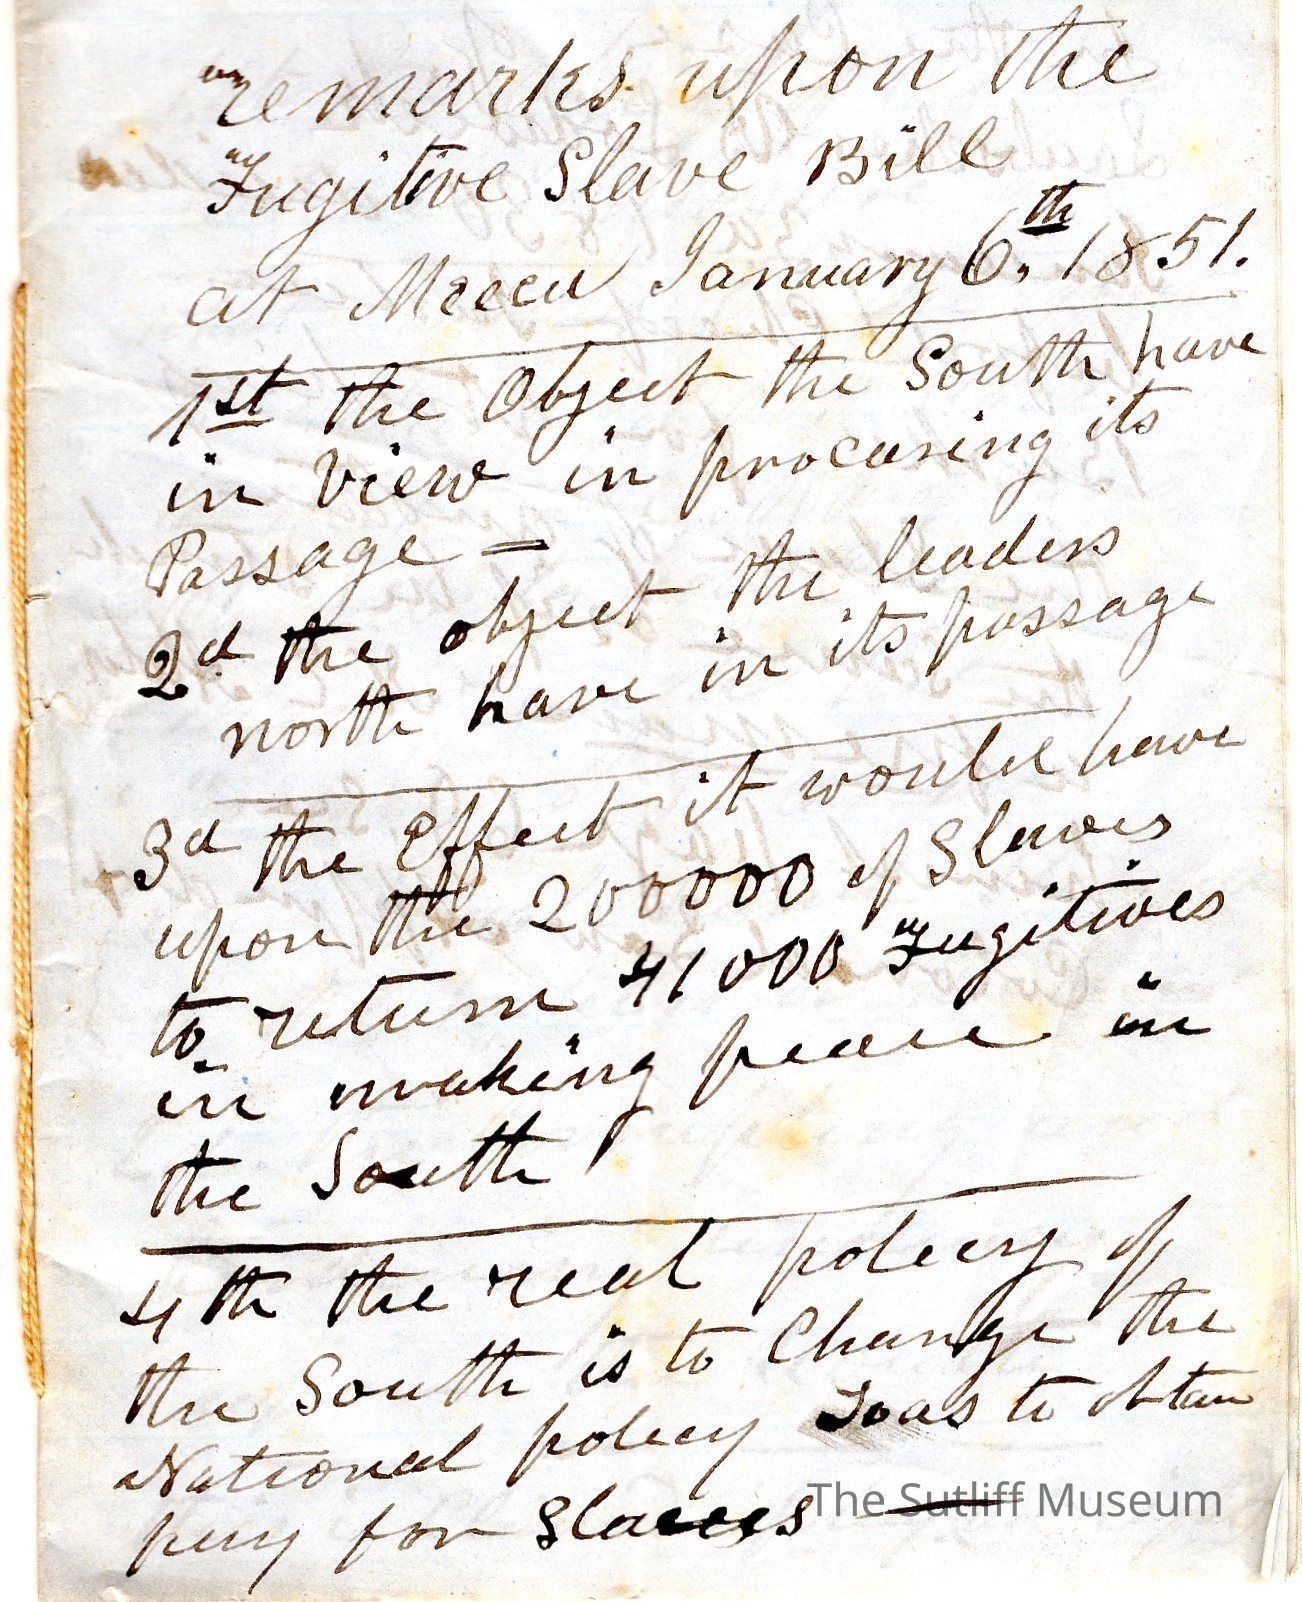 remarks upon the
Fugitive Slave Bill
at Mecca January 6th. 1851.
1st the Object the South have
in view in procuring its
Passage =
2d the object the leaders
north have in its passage
3d the Effect it would have
upon the 200000 of Slaves
to return 41000 Fugitives
in making peace in
the South
4th the real policy of
the South is to Change the
National policy Soas to obtain
pay for Slaves
The Sutliff Museum